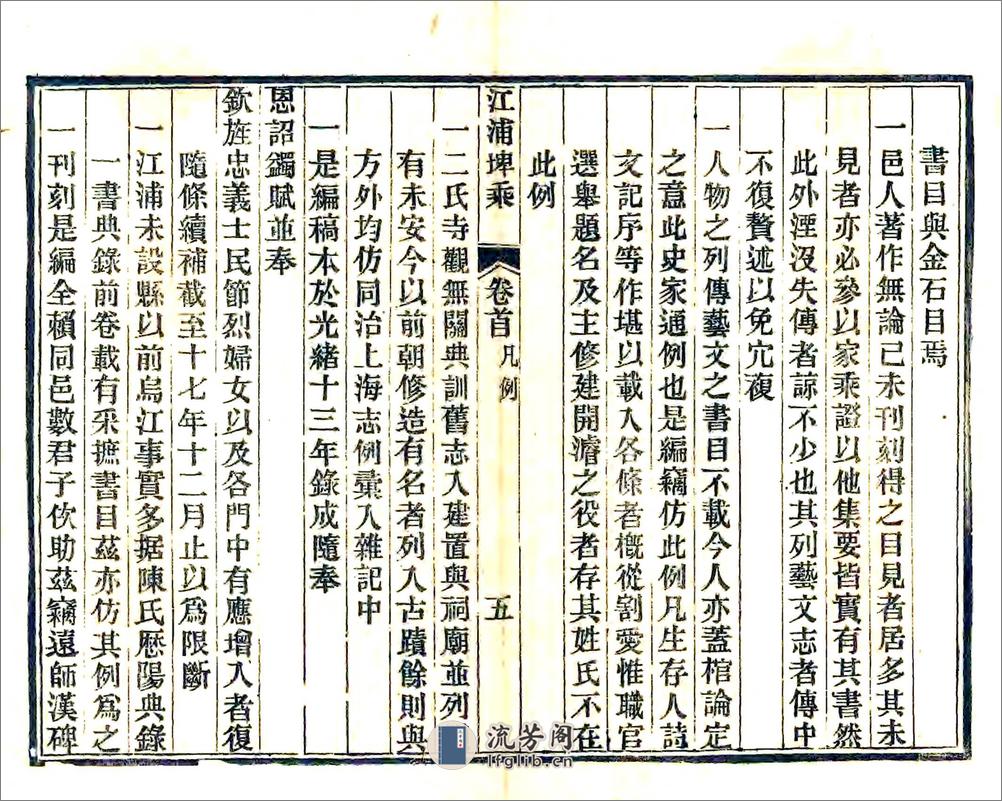 書目與金石目焉
一邑人著作無論已未刊刻得之目見者居多其未
見者亦必參以家乘證以他集要皆實有其書然
此外湮沒失傳者諒不少也其列藝文志者傳中
不復贅述以免宂複
一人物之列傳藝文之書目不載今人亦蓋棺論定
之意此史家通例也是編竊仿此例凡生存人詩
文記序等作堪以載入各條者槪從割愛惟職官
選舉題名及主修建開濬之役者存其姓氏不在
此例
江浦埤乘
卷首 凡例
五
一二氏寺觀無關典訓舊志入建置與祠廟並列
有未安今以前朝修造有名者列入古蹟餘則與
方外均仿同治上海志例彙入雜記中
一是編稿本於光緒十三年錄成隨奉
恩詔蠲賦並奉
欽旌忠義士民節烈婦女以及各門中有應增入者復
隨條續補截至十七年十二月止以爲限斷
一江浦未設縣以前烏江事實多据陳氏歷陽典錄
一書典錄前卷載有采摭書目茲亦仿其例爲之
一刊刻是編全賴同邑數君子佽助茲竊遠師漢碑
流芳閣
lfglib.cn